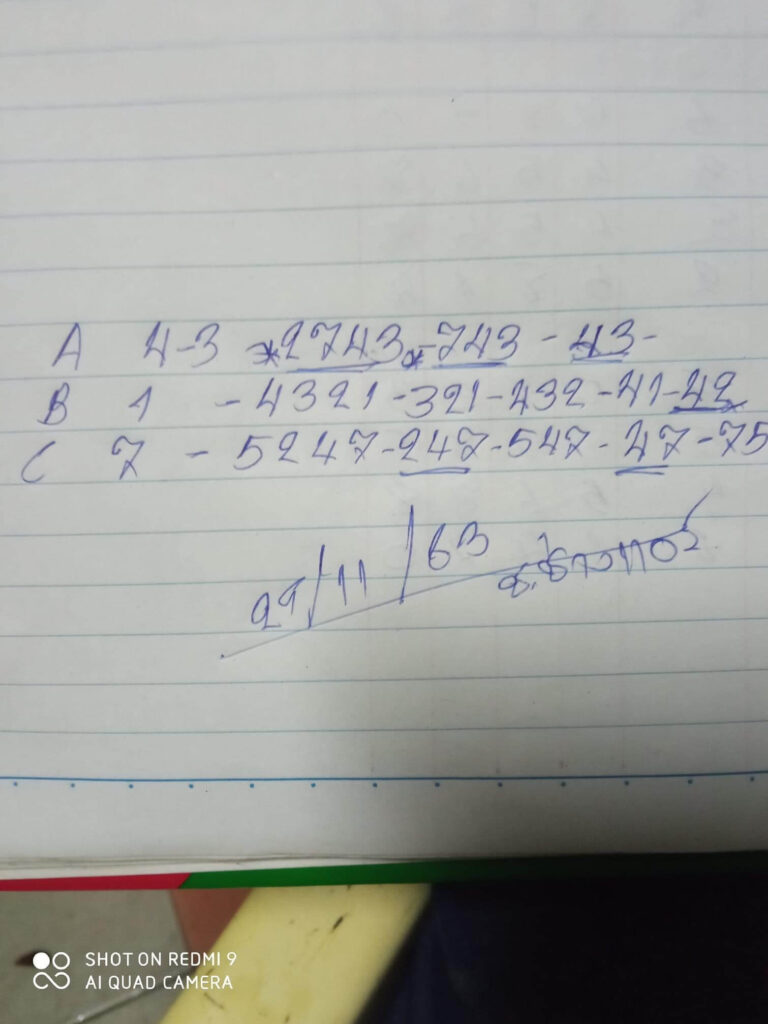 A 4-3 *2743*-743-43-
B 1 -4321-321-432-41-42
C 7 -5247-247-547-47-75
/11/63
SHOT ON REDMI 9
AI QUAD CAMERA